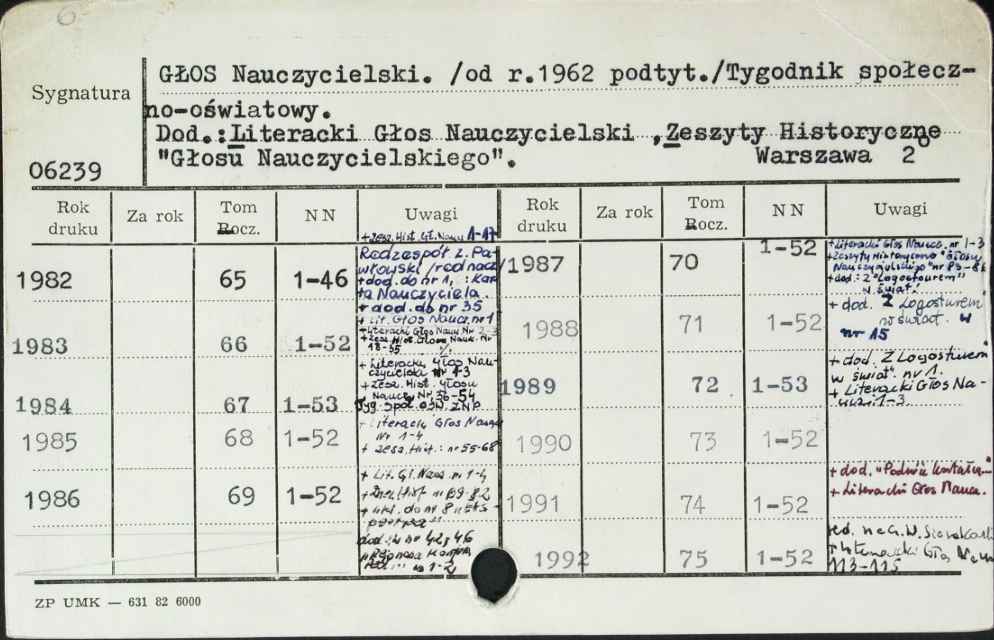 Sygnatura
GŁOS Nauczycielski. /od r.1962 podtyt./Tygodnik społecz-
no-oświatowy.
Dod.:Literacki Głos Nauczycielski ,Zeszyty Historyczne
"Głosu Nauczycielskiego". Warszawa 2
06239
Rok druku Za rok Tom Rocz. NN Uwagi Rok druku Za rok Tom Rocz. NN Uwagi
+ zesz. Hist. Gł. Naucz 1-17
1982 65 1-46
Redzespół z. Pa-
włowski /rednacz/
+dod. do nr 1, : Kar
ta Nauczyciela.
+ dod. do nr 35
+ Lit. Głos Naucz. nr 1
1983 66 1-52
+ Literacki Głos Nauk Nr 2-3
+ zesz. Hist. Głosu Nauk. Nr
18-35
1984 67 1-53
+ Literacki Głos Nau-
czycielski nr 1-3
+ zesz. Hist. Głosu
Naucz. Nr 36-54
Tyg. społ. ośw. ZNP
1985 68 1-52
+ Literacki Głos Naucz
nr 1-4
+ zesz. Hist.: nr 55-68
1986 69 1-52
+ Lit. Gł. Naucz. nr 1-4
do nr 8
dod. do nr 42, 46
nr 1-2
1987 70 1-52
+Literacki Głos Naucz. nr 1-3
+Zeszyty Historyczne "Głosu
Nauczycielskiego" nr 83-86
+dod.: Z "Logostourem"
w świat!
1988 71 1-52
+ dod. Z Logostourem
w świat. w
nr 15
1989 72 1-53
+ dod. Z Logostourem
w świat". nr 1.
+ Literacki Głos Na-
ucz. 1-3.
1990 73 1-52
1991 74 1-52
+ dod. "Podróże kształcą"
+ Literacki Głos Naucz.
1992 75 1-52
red. nacz. W.
+ Literacki Głos Naucz
113-115
ZP UMK — 631 82 6000